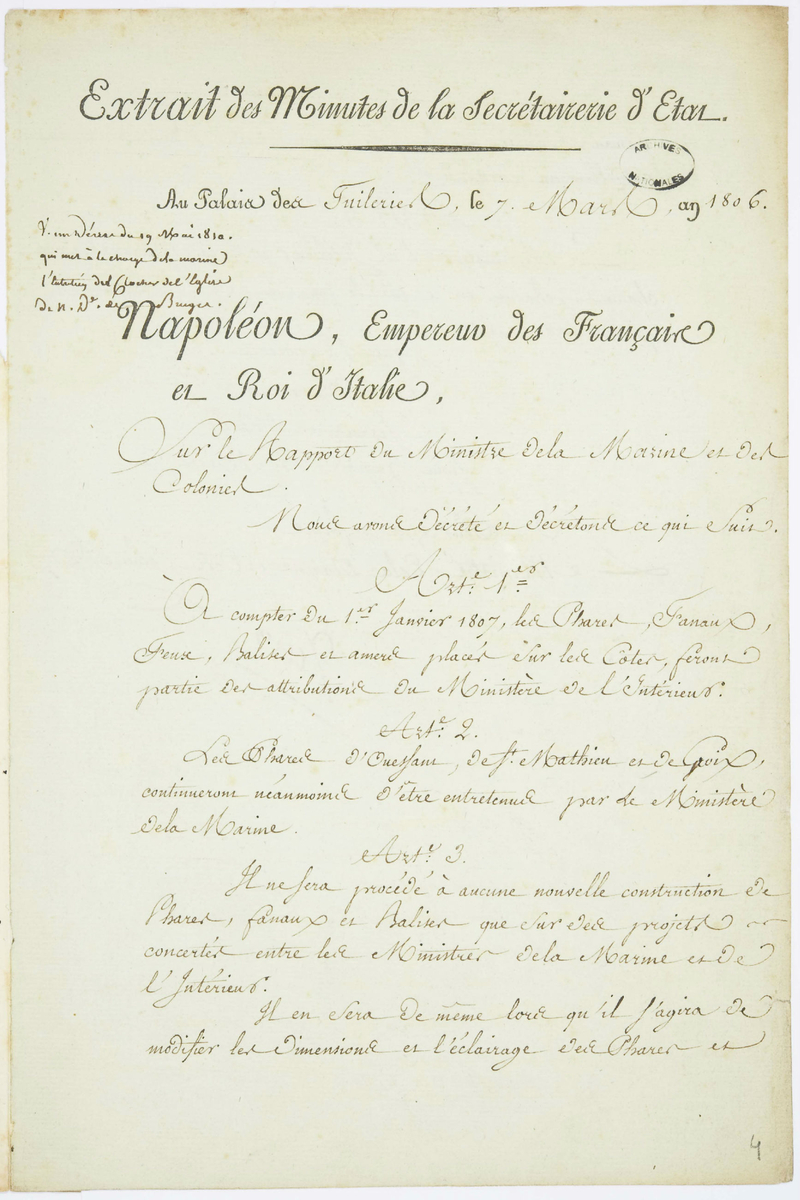 Extrait des Minutes de la Secrétairerie d'Etat.
ARCHIVES
NATIONALES
Au Palais des Tuileries, le 7. Mars, an 1806.
V. un Décret du 19 Mai 1810.
qui met à la charge de la marine
l'entretien del Clocher de l'Eglise
de N. De. de Burger.
Napoléon, Empereur des Français
et Roi d'Italie,
Sur le Rapport du Ministre de la Marine et des
Colonies.
Nous avons Décrété et Décrétons ce qui Suit.
Arte. 1er
À compter du 1er Janvier 1807, les Phares, Fanaux,
Feux, Balises et amers placés Sur les Côtes, feront
partie des attributions du Ministère de l'Intérieur.
Arte. 2.
Les Phares d'Ouessant, de St. Mathieu et de Groix,
continueront néanmoins d'être entretenus par le Ministère
de la Marine.
Arte. 3.
Il ne sera procédé à aucune nouvelle construction de
Phares, fanaux et Balises que sur des projets
concertés entre les Ministres de la Marine et de
l'Intérieur.
Il en sera de même lors qu'il s'agira de
modifier les dimensions et l'éclairage des Phares et
4